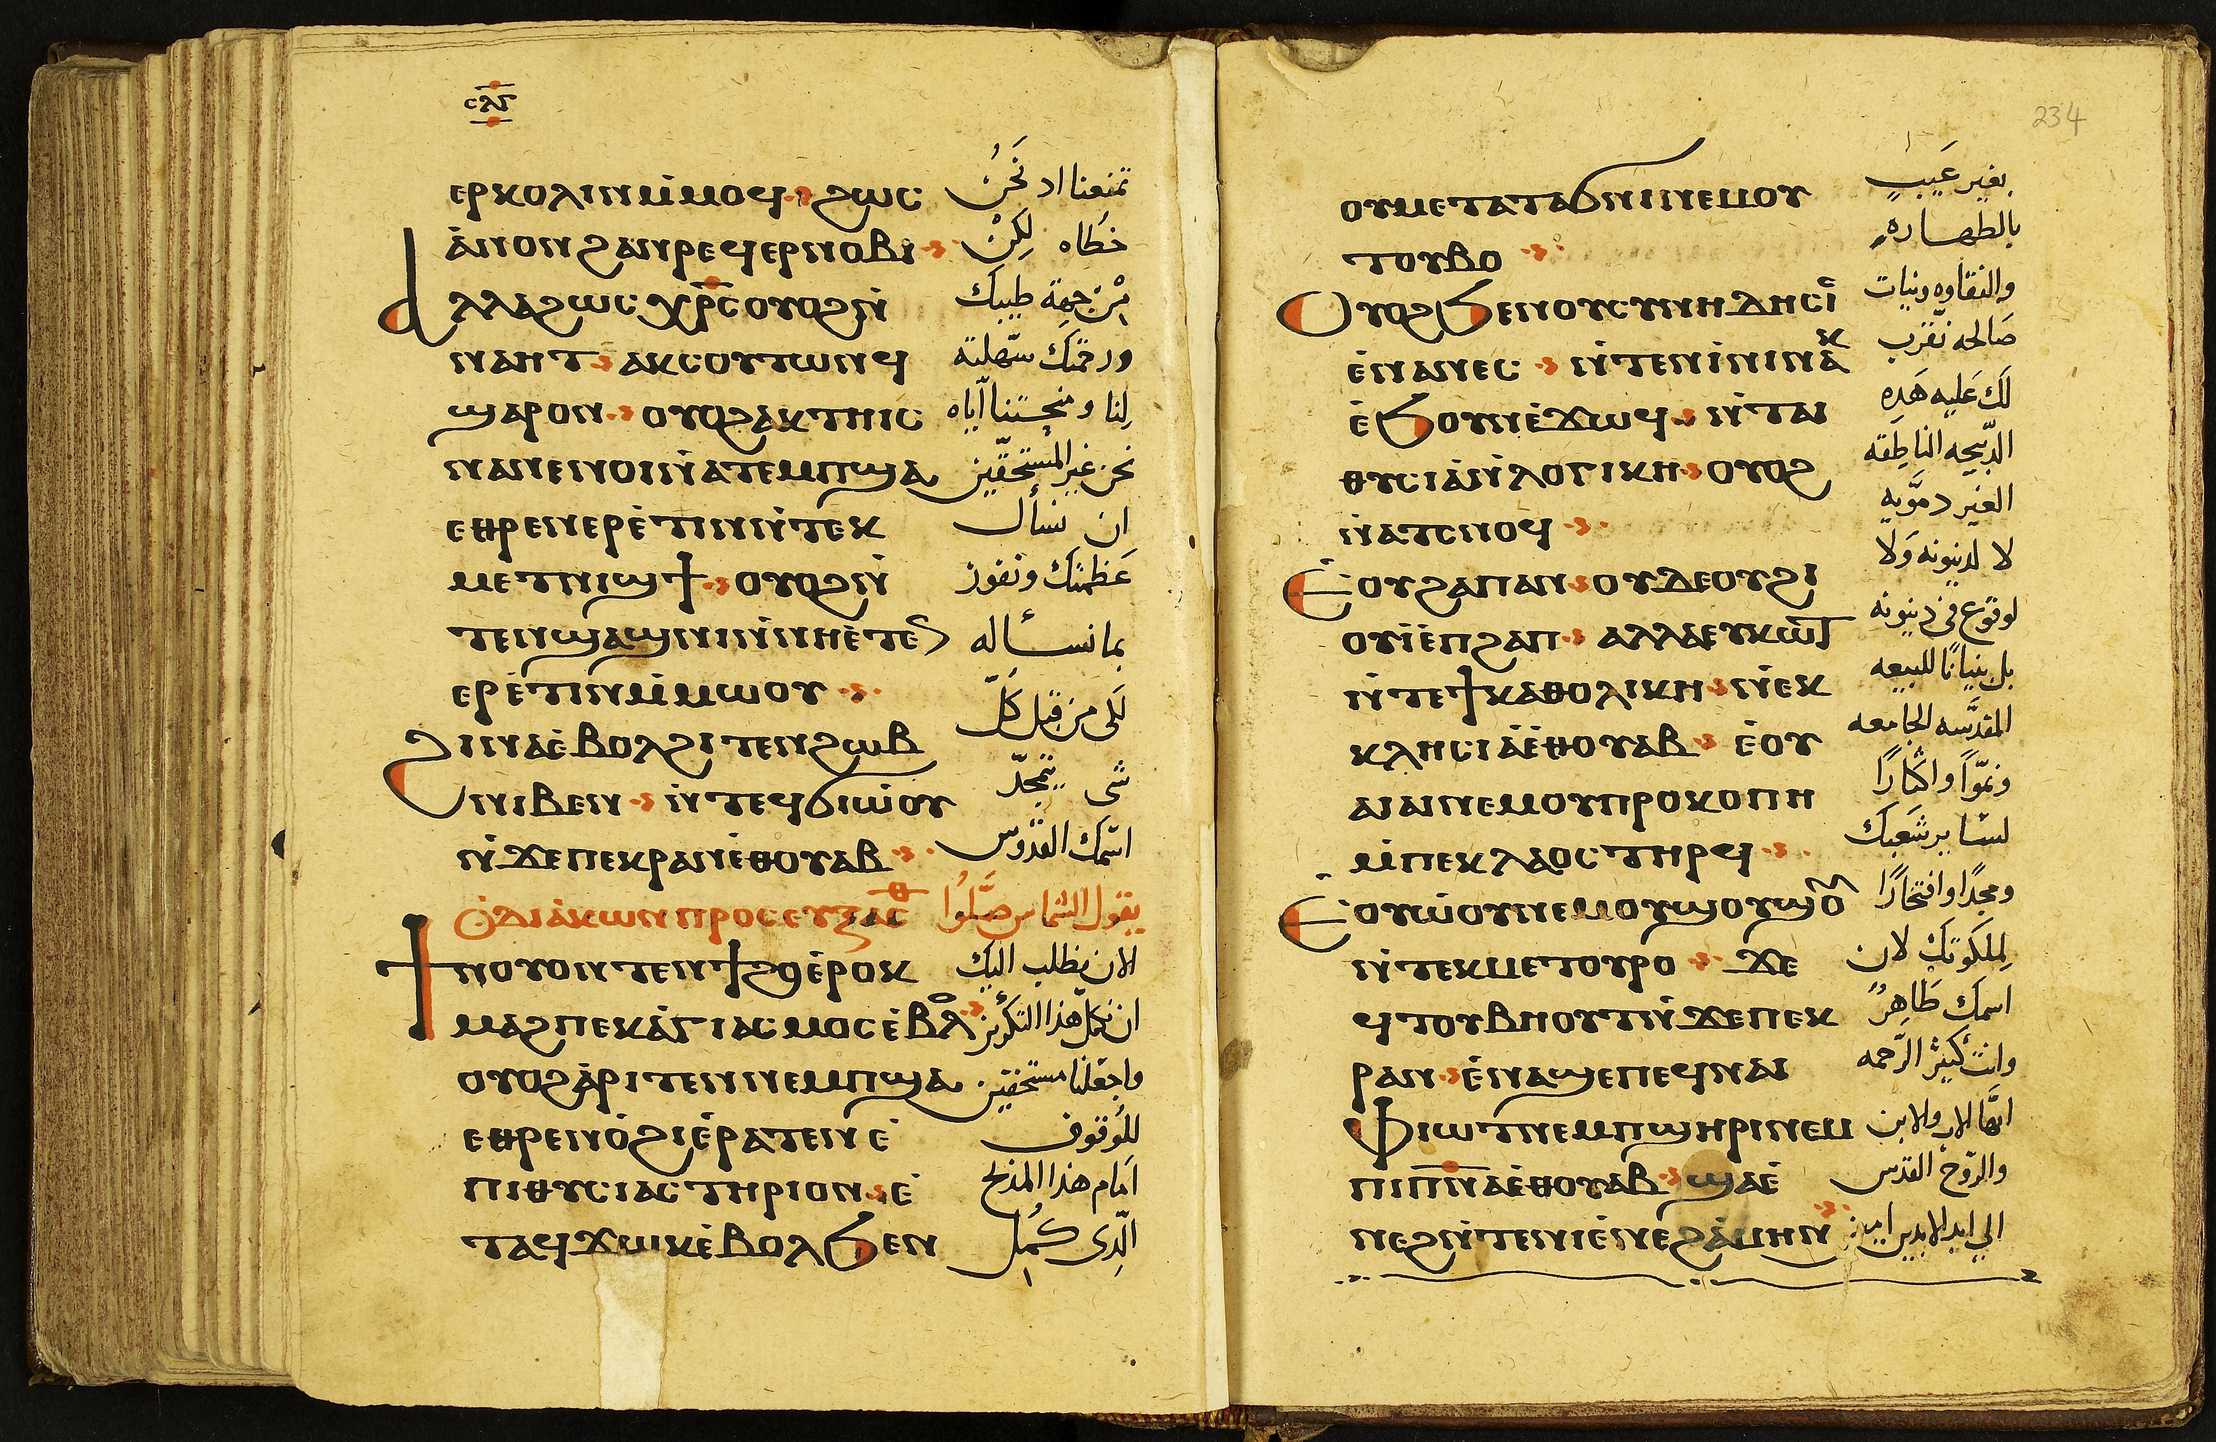 ⲥⲗⲅ
ⲉⲣⲕⲟⲗⲓⲛ ⲙ̇ⲙⲟϥ ϩⲱⲥ
ⲁ̇ⲛⲟⲛ ϩⲁⲛⲣⲉϥⲉⲣⲛⲟⲃⲓ
ⲁⲗⲗⲁ ϩⲱⲥ ⲭⲣ̅ⲥ ⲟⲩⲟϩ ⲛ̇
ⲛⲁⲏⲧ ⲁⲕⲥⲟⲩⲧⲱⲛϥ
ϣⲁⲣⲟⲛ ⲟⲩⲟϩ ⲁⲕⲧⲏⲓⲥ
ⲛⲁⲛ ⲉⲛⲟⲓ ⲛ̇ⲁⲧⲉⲙⲡϣⲁ
ⲉⲑⲣⲉⲛⲉⲣⲉ̇ⲧⲓⲛ ⲛ̇ⲧⲉⲕ
ⲙⲉⲧⲛⲓϣϯ ⲟⲩⲟϩ ⲛ̇
ⲧⲉⲛϣⲁϣⲛⲓ ⲛ̇ⲛⲏⲉ̇ⲧⲉⲛ
ⲉⲣⲉ̇ⲧⲓⲛ ⲙ̇ⲙⲱⲟⲩ
ϩⲓⲛⲁ ⲉ̇ⲃⲟⲗϩⲓⲧⲉⲛ ϩⲱⲃ
ⲛⲓⲃⲉⲛ ⲛ̇ⲧⲉϥϭⲓⲱ̇ⲟⲩ
ⲛ̇ϫⲉⲡⲉⲕⲣⲁⲛ ⲉ̇ⲑⲟⲩⲁⲃ
ⲟ̇ⲇⲓⲁ̇ⲕⲱⲛ ⲡⲣⲟⲥⲉⲩⲝⲁⲥⲑ
ϯⲛⲟⲩ ⲟⲛ ⲧⲉⲛϯϩⲟ ⲉ̇ⲣⲟⲕ
ⲙⲁϩ ⲡⲉⲕⲁ̇ⲅⲓⲁⲥⲙⲟⲥ ⲉ̇ⲃⲟⲗ
ⲟⲩⲟϩ ⲁ̇ⲣⲓⲧⲉⲛ ⲛⲉⲙⲡϣⲁ
ⲉⲑⲣⲉⲛⲟ̇ϩⲓ ⲉ̇ⲣⲁⲧⲉⲛ ⲉ̇
ⲡⲓⲑⲩⲥⲓⲁⲥⲧⲏⲣⲓⲟⲛ ⲉ̇
ⲧⲁϥϫⲱⲕ ⲉ̇ⲃⲟⲗ ϧⲉⲛ
تمنعنا اد نَحنُ
خطاه لِكِنْ
مِنْ جهة طيبك
ورحمتك سهلته
لنا ومنحتنا اياه
نحن غير المستحقين
ان نسأل
عظمتك ونفوز
بما نسأله
لكى من قبل كل
شى يتمجد
اسمك القدوس
يقول الشماس صَلّوا
الان نطلب اليك
ان تكمل هذا
واجعلنا مستحقين
للوقوف
امام هذا المذبح
الدى كمل
234
ⲟⲩⲙⲉⲧⲁⲧⲁϭⲛⲓ ⲛⲉⲙ ⲟⲩ
ⲧⲟⲩⲃⲟ
ⲟⲩⲟϩ ϧⲉⲛ ⲟⲩⲥⲩⲛⲏⲇⲏⲥⲓ
ⲉ̇ⲛⲁⲛⲉⲥ ⲛ̇ⲧⲉⲛⲓ̇ⲛⲓ ⲛⲁⲕ
ⲉ̇ϧⲟⲩⲛ ⲉ̇ϫⲱϥ ⲛ̇ⲧⲁⲓ
ⲑⲩⲥⲓⲁ̇ ⲛ̇ⲗⲟⲅⲓⲕⲏ ⲟⲩⲟϩ
ⲛ̇ⲁⲧⲥⲛⲟϥ
ⲉ̇ⲟⲩϩⲁⲡ ⲁⲛ ⲟⲩⲇⲉ ⲟⲩϩⲓ
ⲟⲩⲓ̇ ⲉ̇ⲡϩⲁⲡ ⲁⲗⲗⲁ ⲉⲩⲕⲱⲧ
ⲛ̇ⲧⲉϯⲕⲁⲑⲟⲗⲓⲕⲏ ⲛ̇ⲉⲕ
ⲕⲗⲏⲥⲓⲁ ⲉ̇ⲑⲟⲩⲁⲃ ⲉ̇ⲟⲩ
ⲁⲓⲁⲓ ⲛⲉⲙ ⲟⲩⲡⲣⲟⲕⲟⲡⲏ
ⲙ̇ⲡⲉⲕⲗⲁⲟⲥ ⲧⲏⲣϥ
ⲉ̇ⲟⲩⲱ̇ⲟⲩ ⲛⲉⲙ ⲟⲩϣⲟⲩϣⲟⲩ
ⲛ̇ⲧⲉⲕⲙⲉⲧⲟⲩⲣⲟ ϫⲉ
ϥⲧⲟⲩⲃⲏⲟⲩⲧ ⲛ̇ϫⲉⲡⲉⲕ
ⲣⲁⲛ ⲉ̇ⲛⲁϣⲉ ⲡⲉϥⲛⲁⲓ
ⲫⲓⲱⲧ ⲛⲉⲙ ⲡϣⲏⲣⲓ ⲛⲉⲙ
ⲡⲓⲡ̅ⲛ̅ⲁ ⲉ̇ⲑⲟⲩⲁⲃ ϣⲁ ⲉ̇
ⲛⲉϩ ⲛ̇ⲧⲉ ⲛⲓⲉ̇ⲛⲉϩ ⲁ̇ⲙⲏⲛ
بغير عَيبٍ
بالطهاره
والنقاوه ونيات
صالحه نقرب
لك عَليه هَدِه
الدبيحه الناطِقه
الغير دمويه
لا لدينونه وَلا
لوقوع فى دينونه
بل بنيانًا للبيعه
المقدسه الجامعه
ونموًا واكثارًا
لسائر شعبك
ومجدًا وافتخارًا
لملكوتك لان
اسمك طَاهِرٌ
وانت كثير الرحمه
ايها الاب والابن
والروح القدس
الى ابد الابدين امين